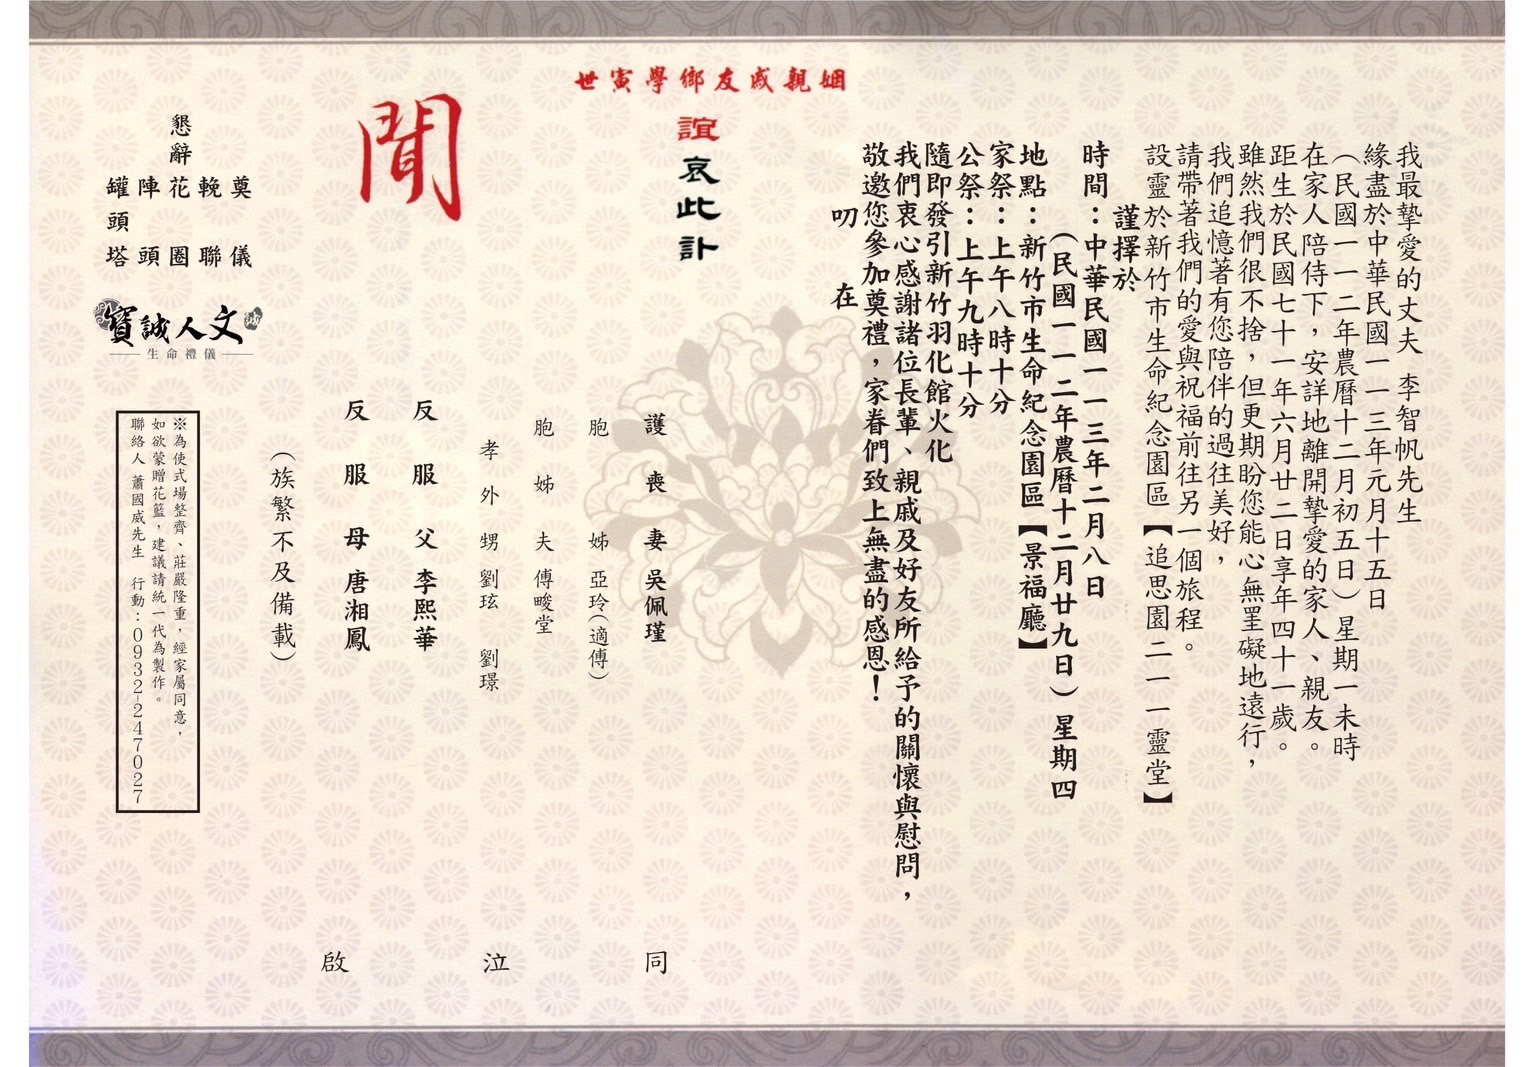 我最摯愛的丈夫 李智帆先生
緣盡於中華民國一一三年元月十五日
（民國一一二年農曆十二月初五日）星期一未時
在家人陪侍下，安詳地離開摯愛的家人、親友。
距生於民國七十一年六月廿二日享年四十一歲。
雖然我們很不捨，但更期盼您能心無罣礙地遠行，
我們追憶著有您陪伴的過往美好，
請帶著我們的愛與祝福前往另一個旅程。
設靈於新竹市生命紀念園區【追思園二一一靈堂】
謹擇於
時間：中華民國一一三年二月八日
（民國一一二年農曆十二月廿九日）星期四
地點：新竹市生命紀念園區【景福廳】
家祭：上午八時十分
公祭：上午九時十分
隨即發引新竹羽化館火化
我們衷心感謝諸位長輩、親戚及好友所給予的關懷與慰問，
敬邀您參加奠禮，家眷們致上無盡的感恩！
叨 在
姻親戚友鄉學寅世
誼哀此訃
聞
護喪妻 吳佩瑾
胞姊 亞玲（適傅）
胞姊夫 傅畯堂
孝外甥 劉玹 劉璟
反服父 李熙華
反服母 唐湘鳳
（族繁不及備載）
同 泣 啟
懇辭
奠儀
輓聯
花圈
陣頭
罐頭塔
寶誠人文
生命禮儀
※為使式場整齊、莊嚴隆重，經家屬同意，
如欲蒙贈花籃，建議請統一代為製作。
聯絡人 蕭國威先生 行動：0932-247027